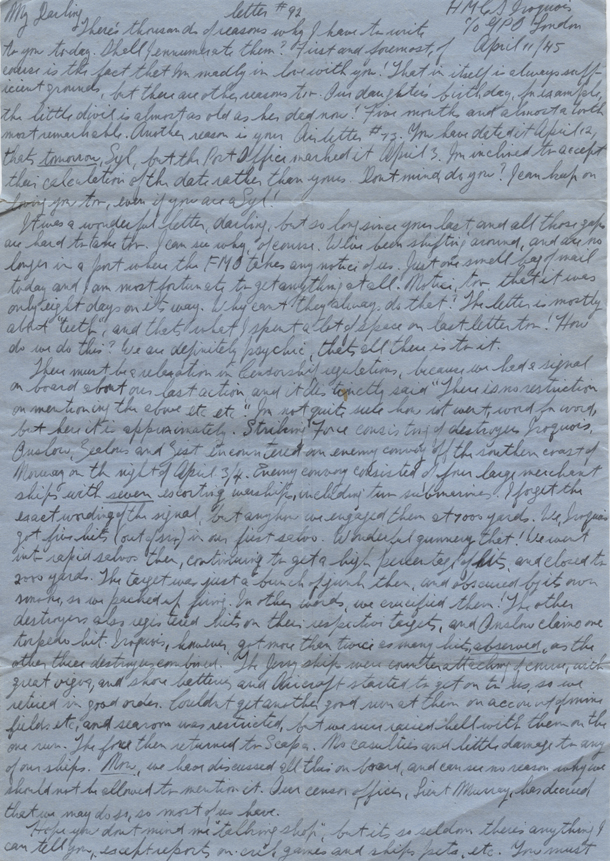 My Darling letter #92 H.M.C.S. Iroquois
There's thousands of reasons why I have to write c/o GPO London
to you today. Shall I ennumerate them? First and foremost, of April 11/45
course is the fact that I'm madly in love with you! That in itself is always suff-
icient grounds, but there are other reasons too. Our daughter's birthday, for example,
the little divil is almost as old as her dad now! Five months and almost a tooth
most remarkable. Another reason is your Air letter #73. You have dated it April 12,
thats tomorrow, Syl, but the Post Office marked it April 3. I'm inclined to accept
their calculation of the date rather than yours. Don't mind do you? I can keep on
loving you too, even if you are a
It was a wonderful letter, darling, but so long since your last, and all those gaps
are hard to take too. I can see why, of course. We've been shifting around, and are no
longer in a port where the FMO takes any notice of us. Just one small bag of mail
today and I am most fortunate to get anything at all. Notice, too, that it was
only eight days on its way. Why can't they always do that? The letter is mostly
about "teeth", and thats what I spent a lot of space on last letter too! How
do we do this? We are definitely psychic, thats all there is to it.
There must be a relaxation in censorship regulations, because we had a signal
on board about our last action, and it distinctly said "There is no restriction
on mentioning the above etc. et." I'm not quite sure how it went, word for word,
but here it is approximately. Striking Force consisting of destroyers Iroquois,
Onslow, Zealous and Zest encountered an enemy convoy off the southern coast of
Norway on the night of April 3/4. Enemy convoy consisted of four large merchant
ships with seven escorting warships, including two submarines. I forget the
exact wording of the signal, but anyhow we engaged them at 7000 yards. We, Iroquois
got five hits (out of six) in our first salvo. Wonderful gunnery that! We went
into rapid salvos then, continuing to get a high percentage of hits, and closed to
3000 yards. The target was just a bunch of junk then, and obscured by its own
smoke, so we packed up firing. In other words, we crucified them! The other
destroyers also registered hits on their respective targets, and Onslow claims one
torpedo hit. Iroquois, however, got more than twice as many hits, observed, as the
other three destroyers combined. The Jerry ships were counterattacking of course, with
great vigor, and shore batteries and Aircraft started to get on to us, so we
retired in good order. Couldn't get another good run at them on account of mine
fields etc, and searoom was restricted, but we sure raised hell with them on the
one run. The force then returned to Scapa. No casualties and little damage to any
of our ships. Now, we have discussed all this on board, and can see no reason why we
should not be allowed to mention it. Our censor officer, Lieut Murray, has decided
that we may do so, so most of us have.
Hope you don't mind me "talking shop", but its so seldom there's anything I
can tell you, except reports on crib games and ship's pets, etc. You must